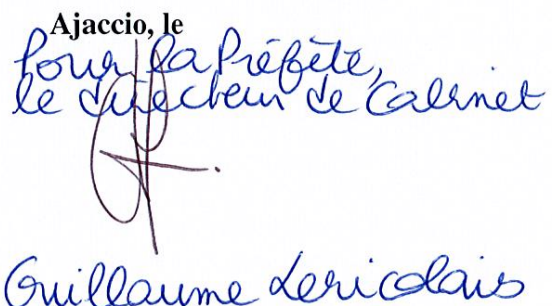 Ajaccio, le
Pour la Préfète,
le directeur de Cabinet
Guillaume Lericolais